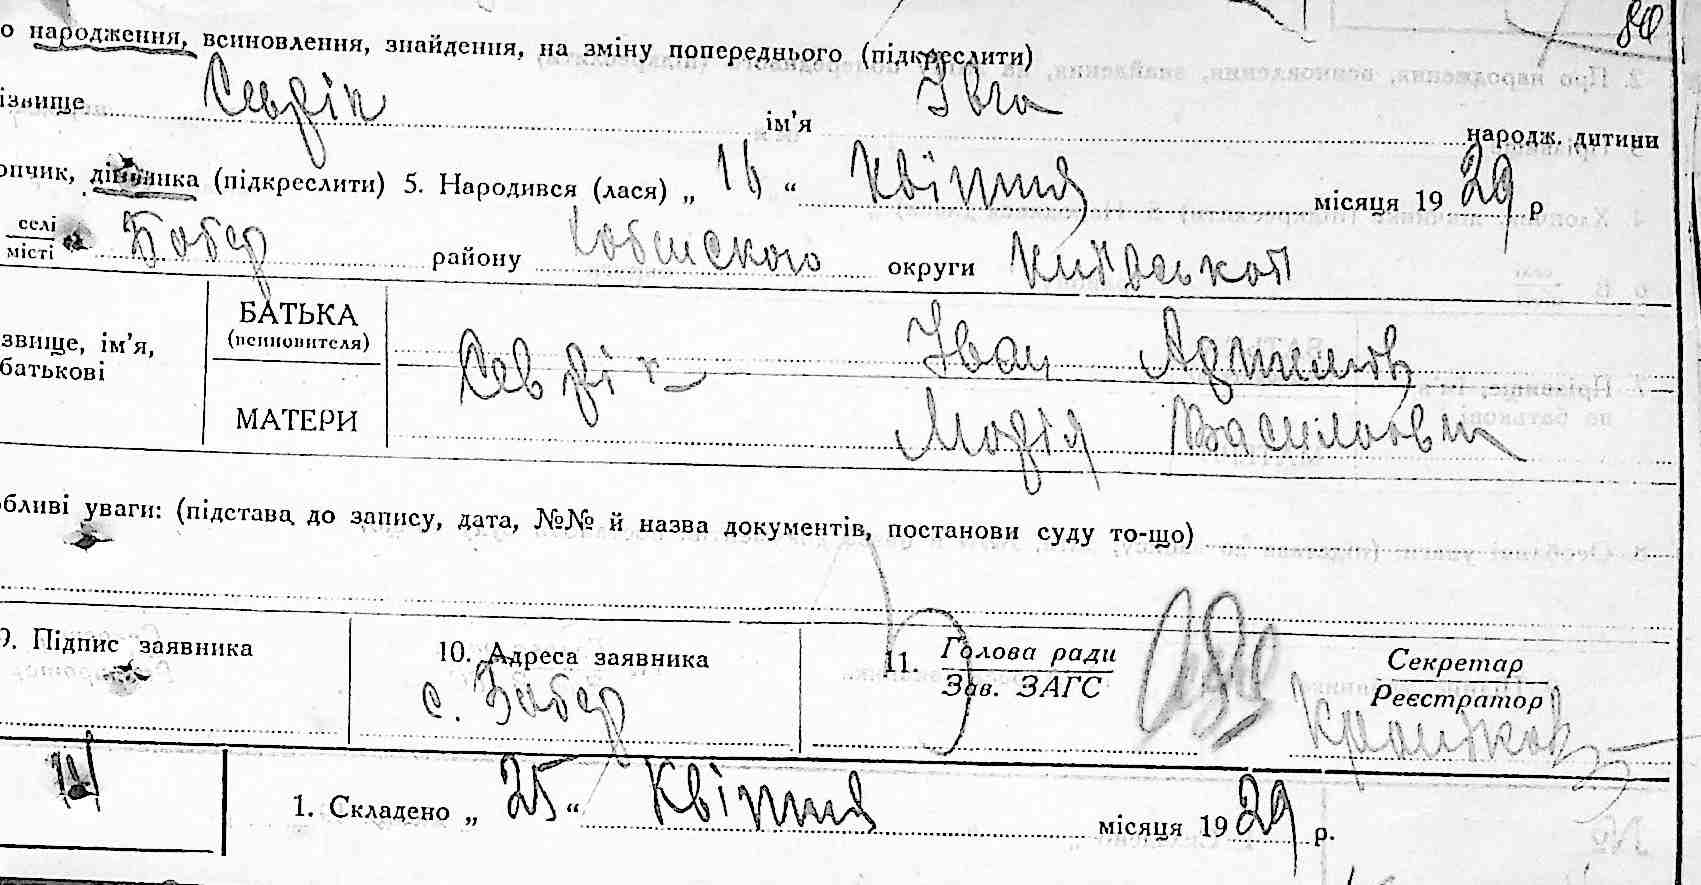 80
о народження, всиновлення, знайдення, на зміну попереднього (підкреслити)
ізвище Севрік ім'я Івга народж. дитини
опчик, дівчинка (підкреслити) 5. Народився (лася) „ 16 “ Квітня місяця 19 29 р
селі
місті Бобер району округи Київської
звище, ім'я,
батькові
БАТЬКА
(всиновителя)
Севрік Іван
МАТЕРИ
Марія Василівн
обливі уваги: (підстава до запису, дата, №№ й назва документів, постанови суду то-що)
9. Підпис заявника
10. Адреса заявника
с. Бобер
11. Голова ради
Зав. ЗАГС
Секретар
Реєстратор
1. Складено „ 25 “ Квітня місяця 19 29 р.